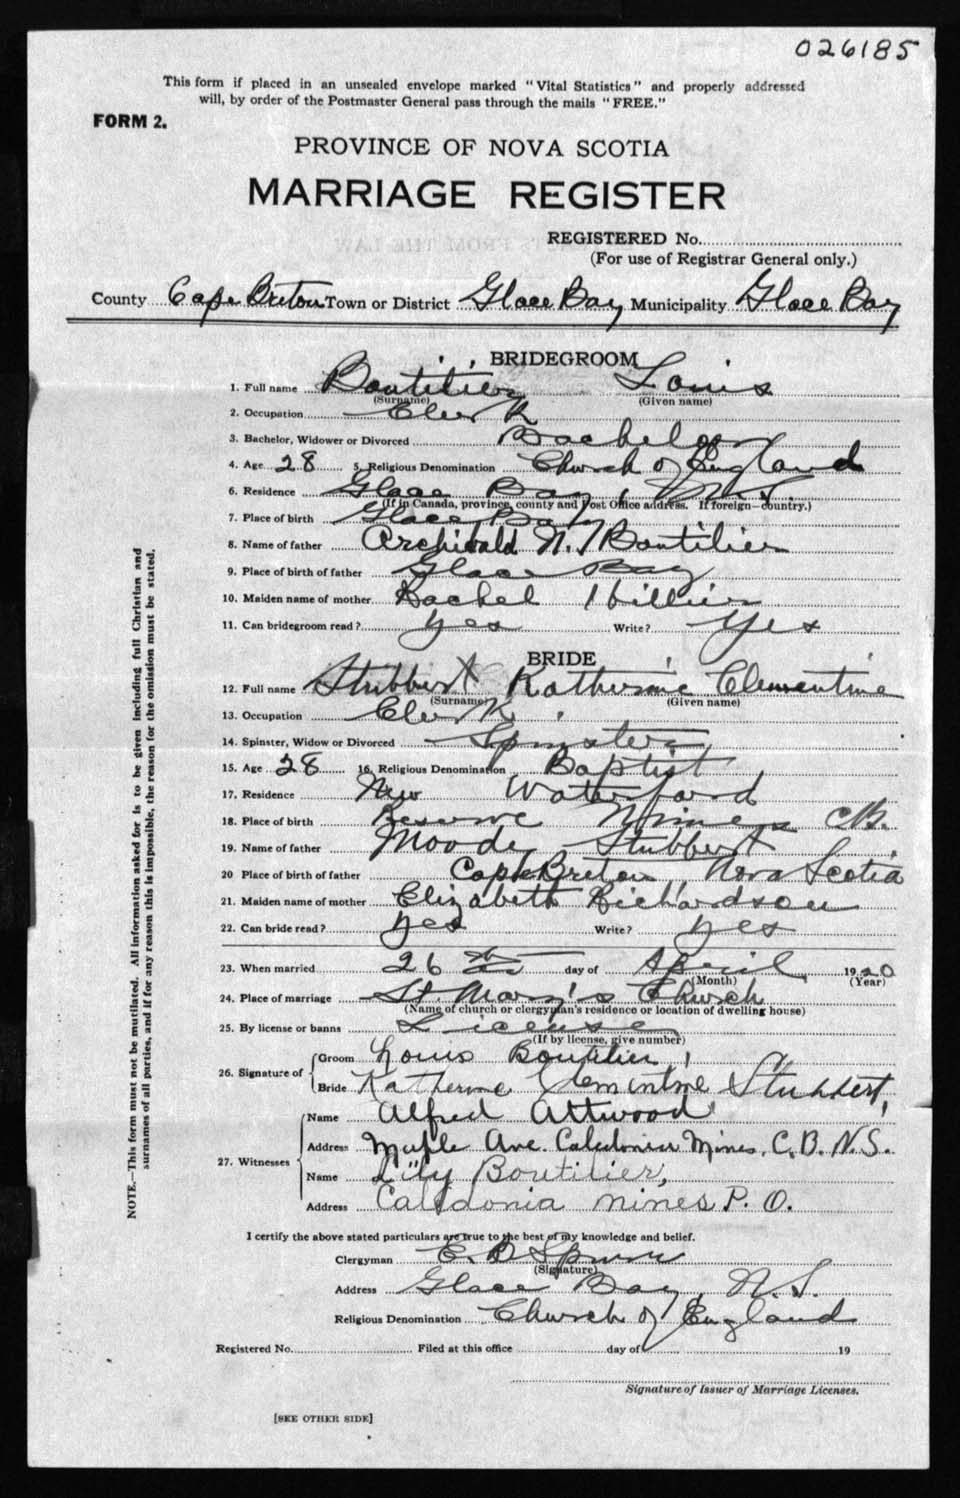 026185
This form if placed in an unsealed envelope marked "Vital Statistics" and properly addressed
will, by order of the Postmaster General pass through the mails "FREE."
FORM 2.
PROVINCE OF NOVA SCOTIA
MARRIAGE REGISTER
REGISTERED No.
(For use of Registrar General only.)
County Cape Breton Town or District Glace Bay Municipality Glace Bay
BRIDEGROOM
1. Full name Boutilier Louis
(Surname) (Given name)
2. Occupation Clerk
3. Bachelor, Widower or Divorced Bachelor
4. Age 28 5. Religious Denomination Church of England
6. Residence Glace Bay, N.S.
(If in Canada, province, county and Post Office address. If foreign—country.)
7. Place of birth Glace Bay
8. Name of father Archibald N. Boutilier
9. Place of birth of father Glace Bay
10. Maiden name of mother Rachel Hillier
11. Can bridegroom read? yes Write? yes
BRIDE
12. Full name Stubbert Katherine Clementine
(Surname) (Given name)
13. Occupation Clerk
14. Spinster, Widow or Divorced Spinster
15. Age 28 16. Religious Denomination Baptist
17. Residence New Waterford
18. Place of birth Reserve Mines C.B.
19. Name of father Moody Stubbert
20 Place of birth of father Cape Breton, Nova Scotia
21. Maiden name of mother Elizabeth Richardson
22. Can bride read? yes Write? yes
23. When married 26th day of April 1920
(Month) (Year)
24. Place of marriage St. Mary's Church
(Name of church or clergyman's residence or location of dwelling house)
25. By license or banns License
(If by license, give number)
26. Signature of Groom Louis Boutilier
Bride Katherine Clementine Stubbert
27. Witnesses Name Alfred Attwood
Address Maple Ave. Caledonia Mines, C.B. N.S.
Name Lily Boutilier,
Address Caledonia Mines P. O.
I certify the above stated particulars are true to the best of my knowledge and belief.
Clergyman E. B. Spurr
(Signature)
Address Glace Bay, N.S.
Religious Denomination Church of England
Registered No. Filed at this office day of 19
Signature of Issuer of Marriage Licenses.
[SEE OTHER SIDE]
NOTE.—This form must not be mutilated. All information asked for is to be given including full Christian and
surnames of all parties, and if for any reason this is impossible, the reason for the omission must be stated.